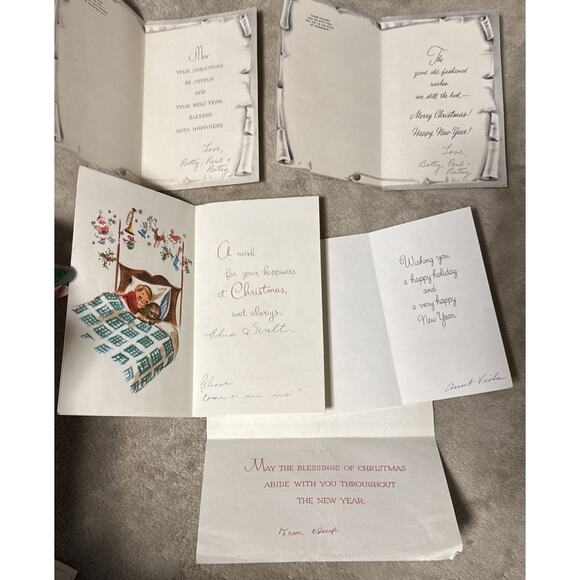 May
your Christmas
be joyous
and
your New Year
blessed
with happiness
Love,
Betty, Paul &
Betsy
The
good old-fashioned
wishes
are still the best—
Merry Christmas!
Happy New Year!
Love,
Betty, Paul &
Betsy
A wish
for your happiness
at Christmas,
and always.
Edna & Walt—
Please
come & see us
Wishing you
a happy holiday
and
a very happy
New Year
Aunt
May the blessings of Christmas
abide with you throughout
the New Year
From